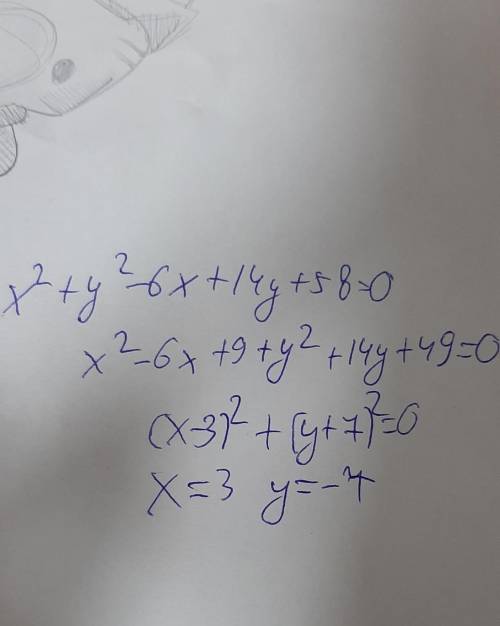 x²+y²-6x+14y+58=0
x²-6x+9+y²+14y+49=0
(x-3)²+(y+7)²=0
x=3 y=-7